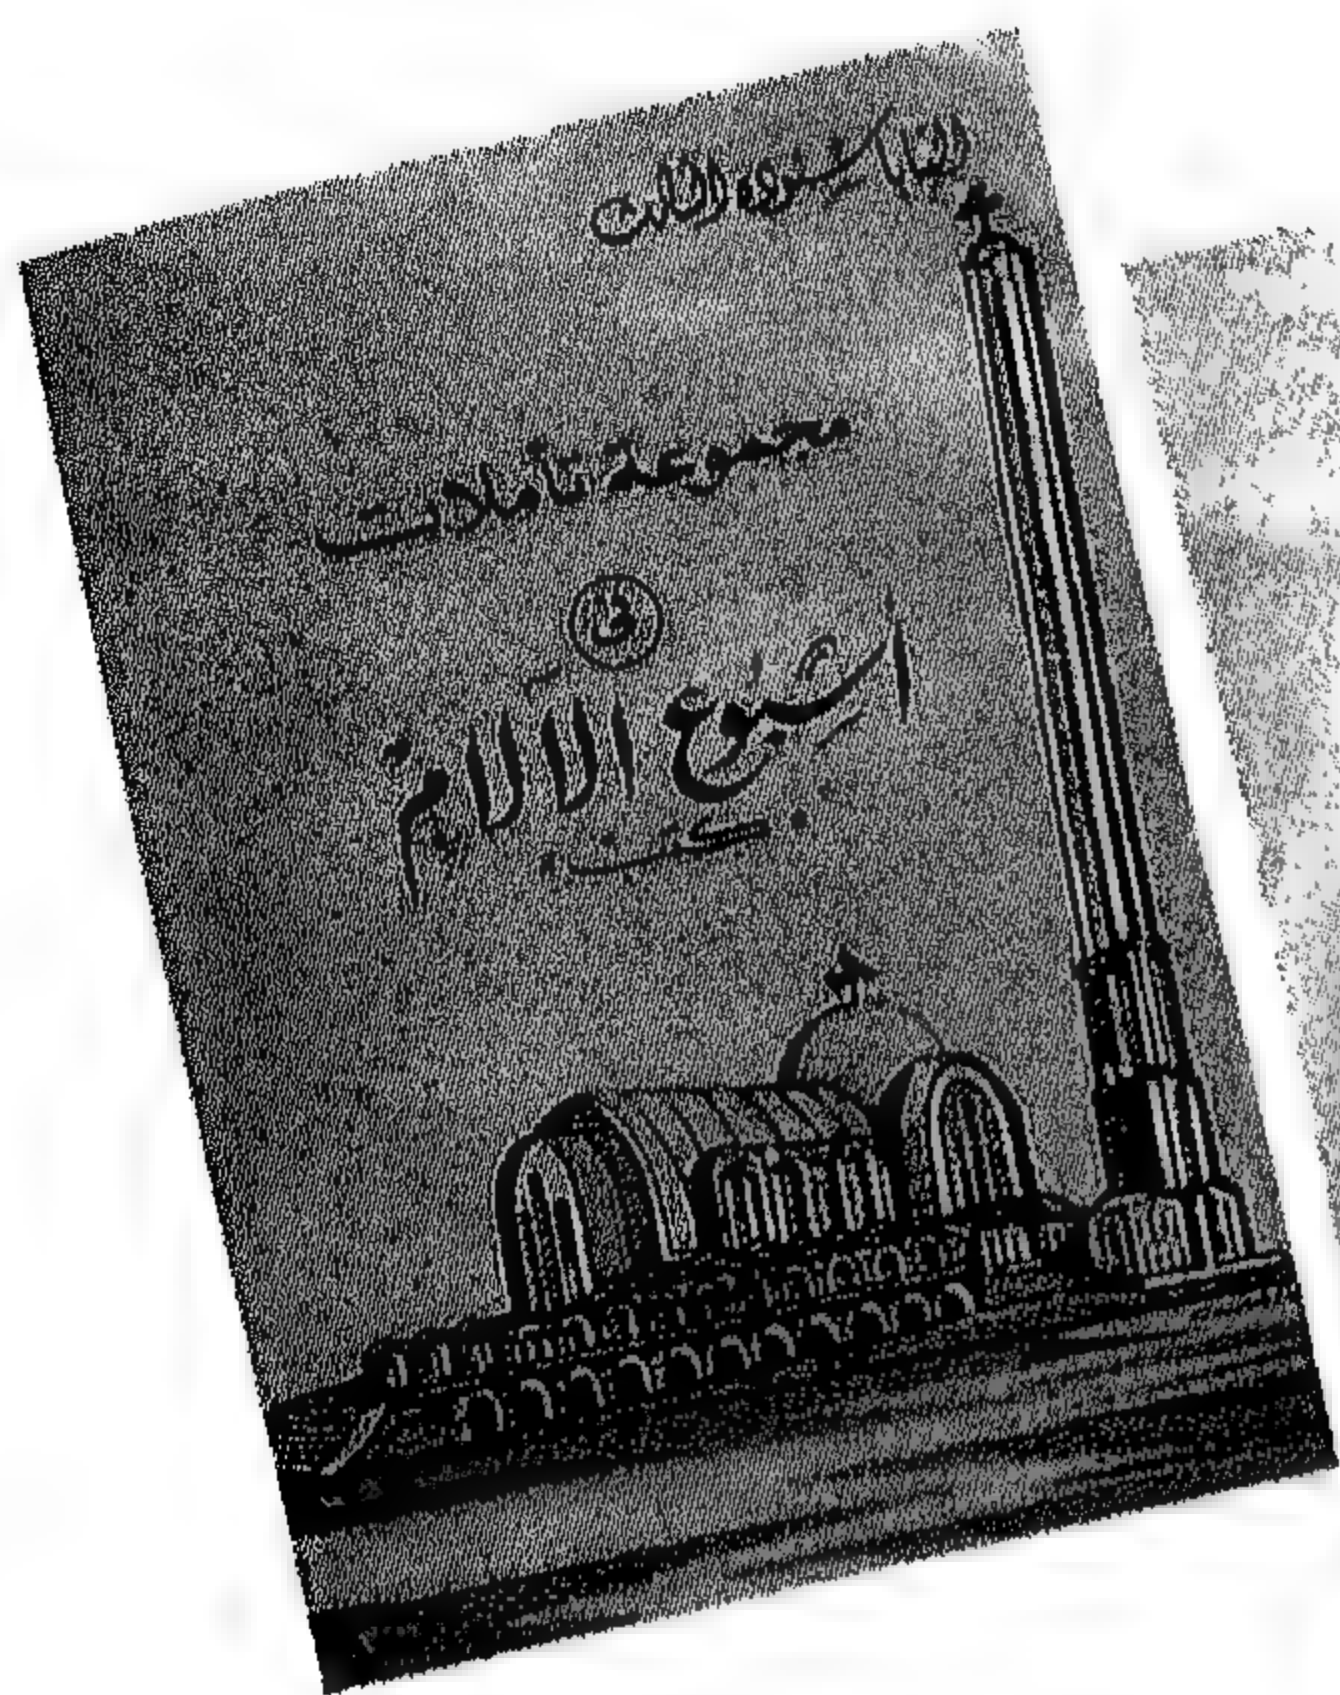 البابا شنوده الثالث
مجموعة تأملات
في
أسبوع الآلام